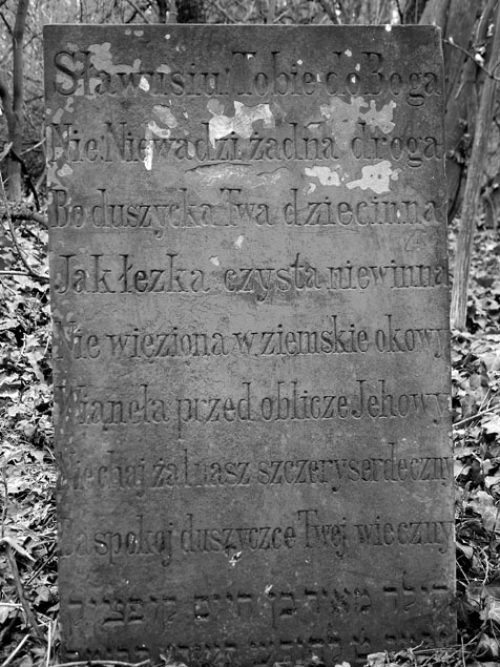 Sławusiu! Tobie do Boga
Nie Niewadzi żadna droga
Bo duszycka Twa dziecinna
Jak łezka czysta niewinna
Nie więziona w ziemskie okowy
Wianeła przed oblicze Jehowy
Niechaj żal nasz szczery serdeczny
Za spokój duszyczce Twej wieczny
הילד מאיר בן חיים